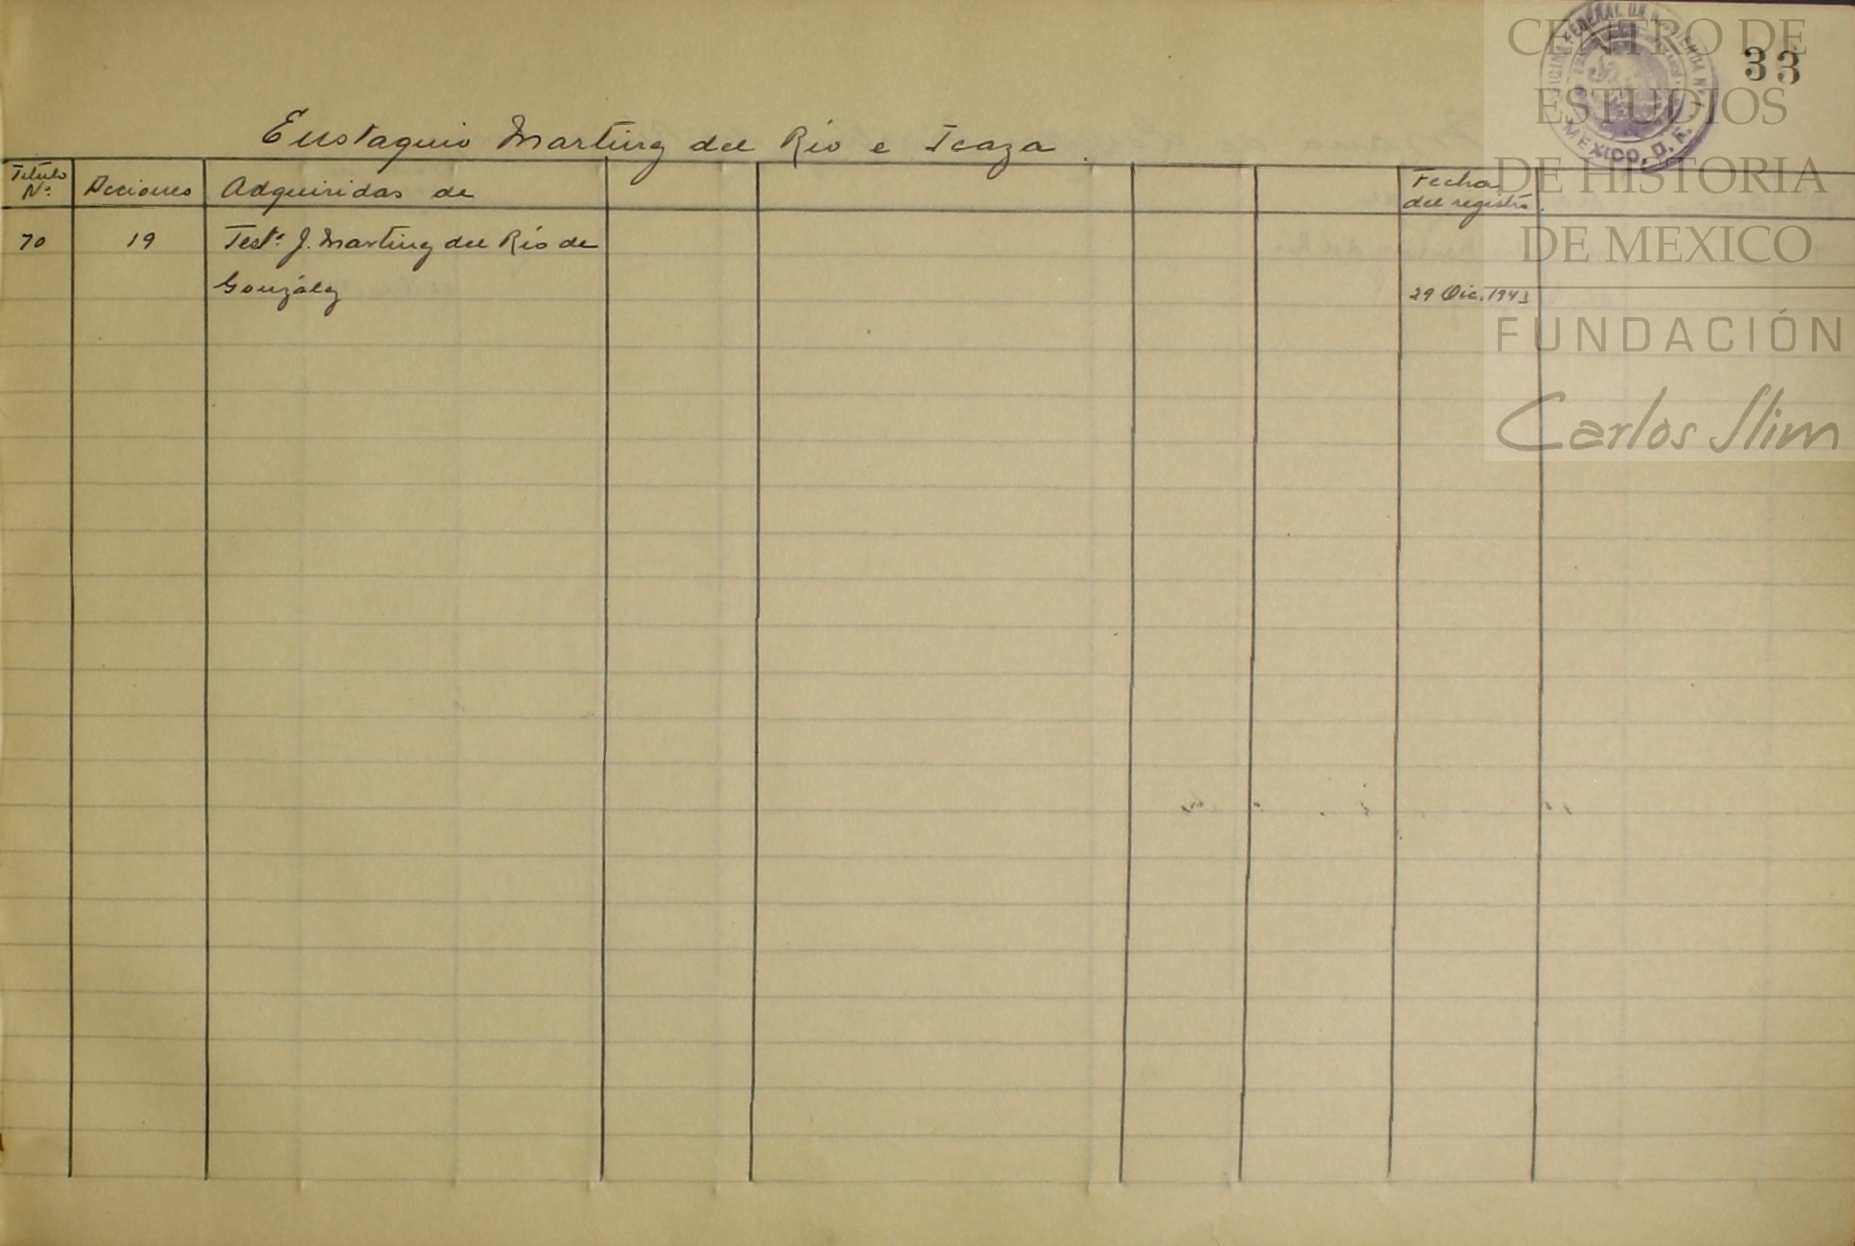 33
CENTRO DE
ESTUDIOS
DE HISTORIA
DE MEXICO
FUNDACIÓN
Carlos Slim
MEXICO, D. F.
Eustaquio Martínez del Río e Icaza.
Título Nº
Acciones
Adquiridas de
Fecha
del registro.
70 19 Testª J. Martínez del Río de
González 29 Dic. 1943